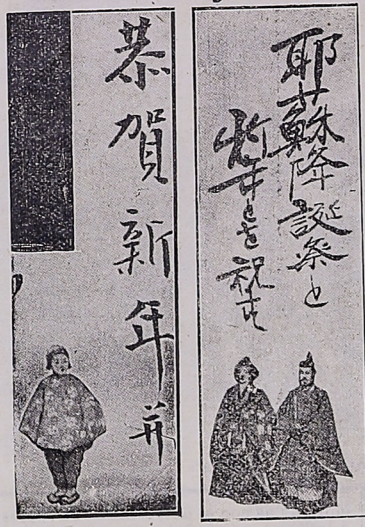 耶蘇降誕祭と
新年とを祝す
恭賀新年并